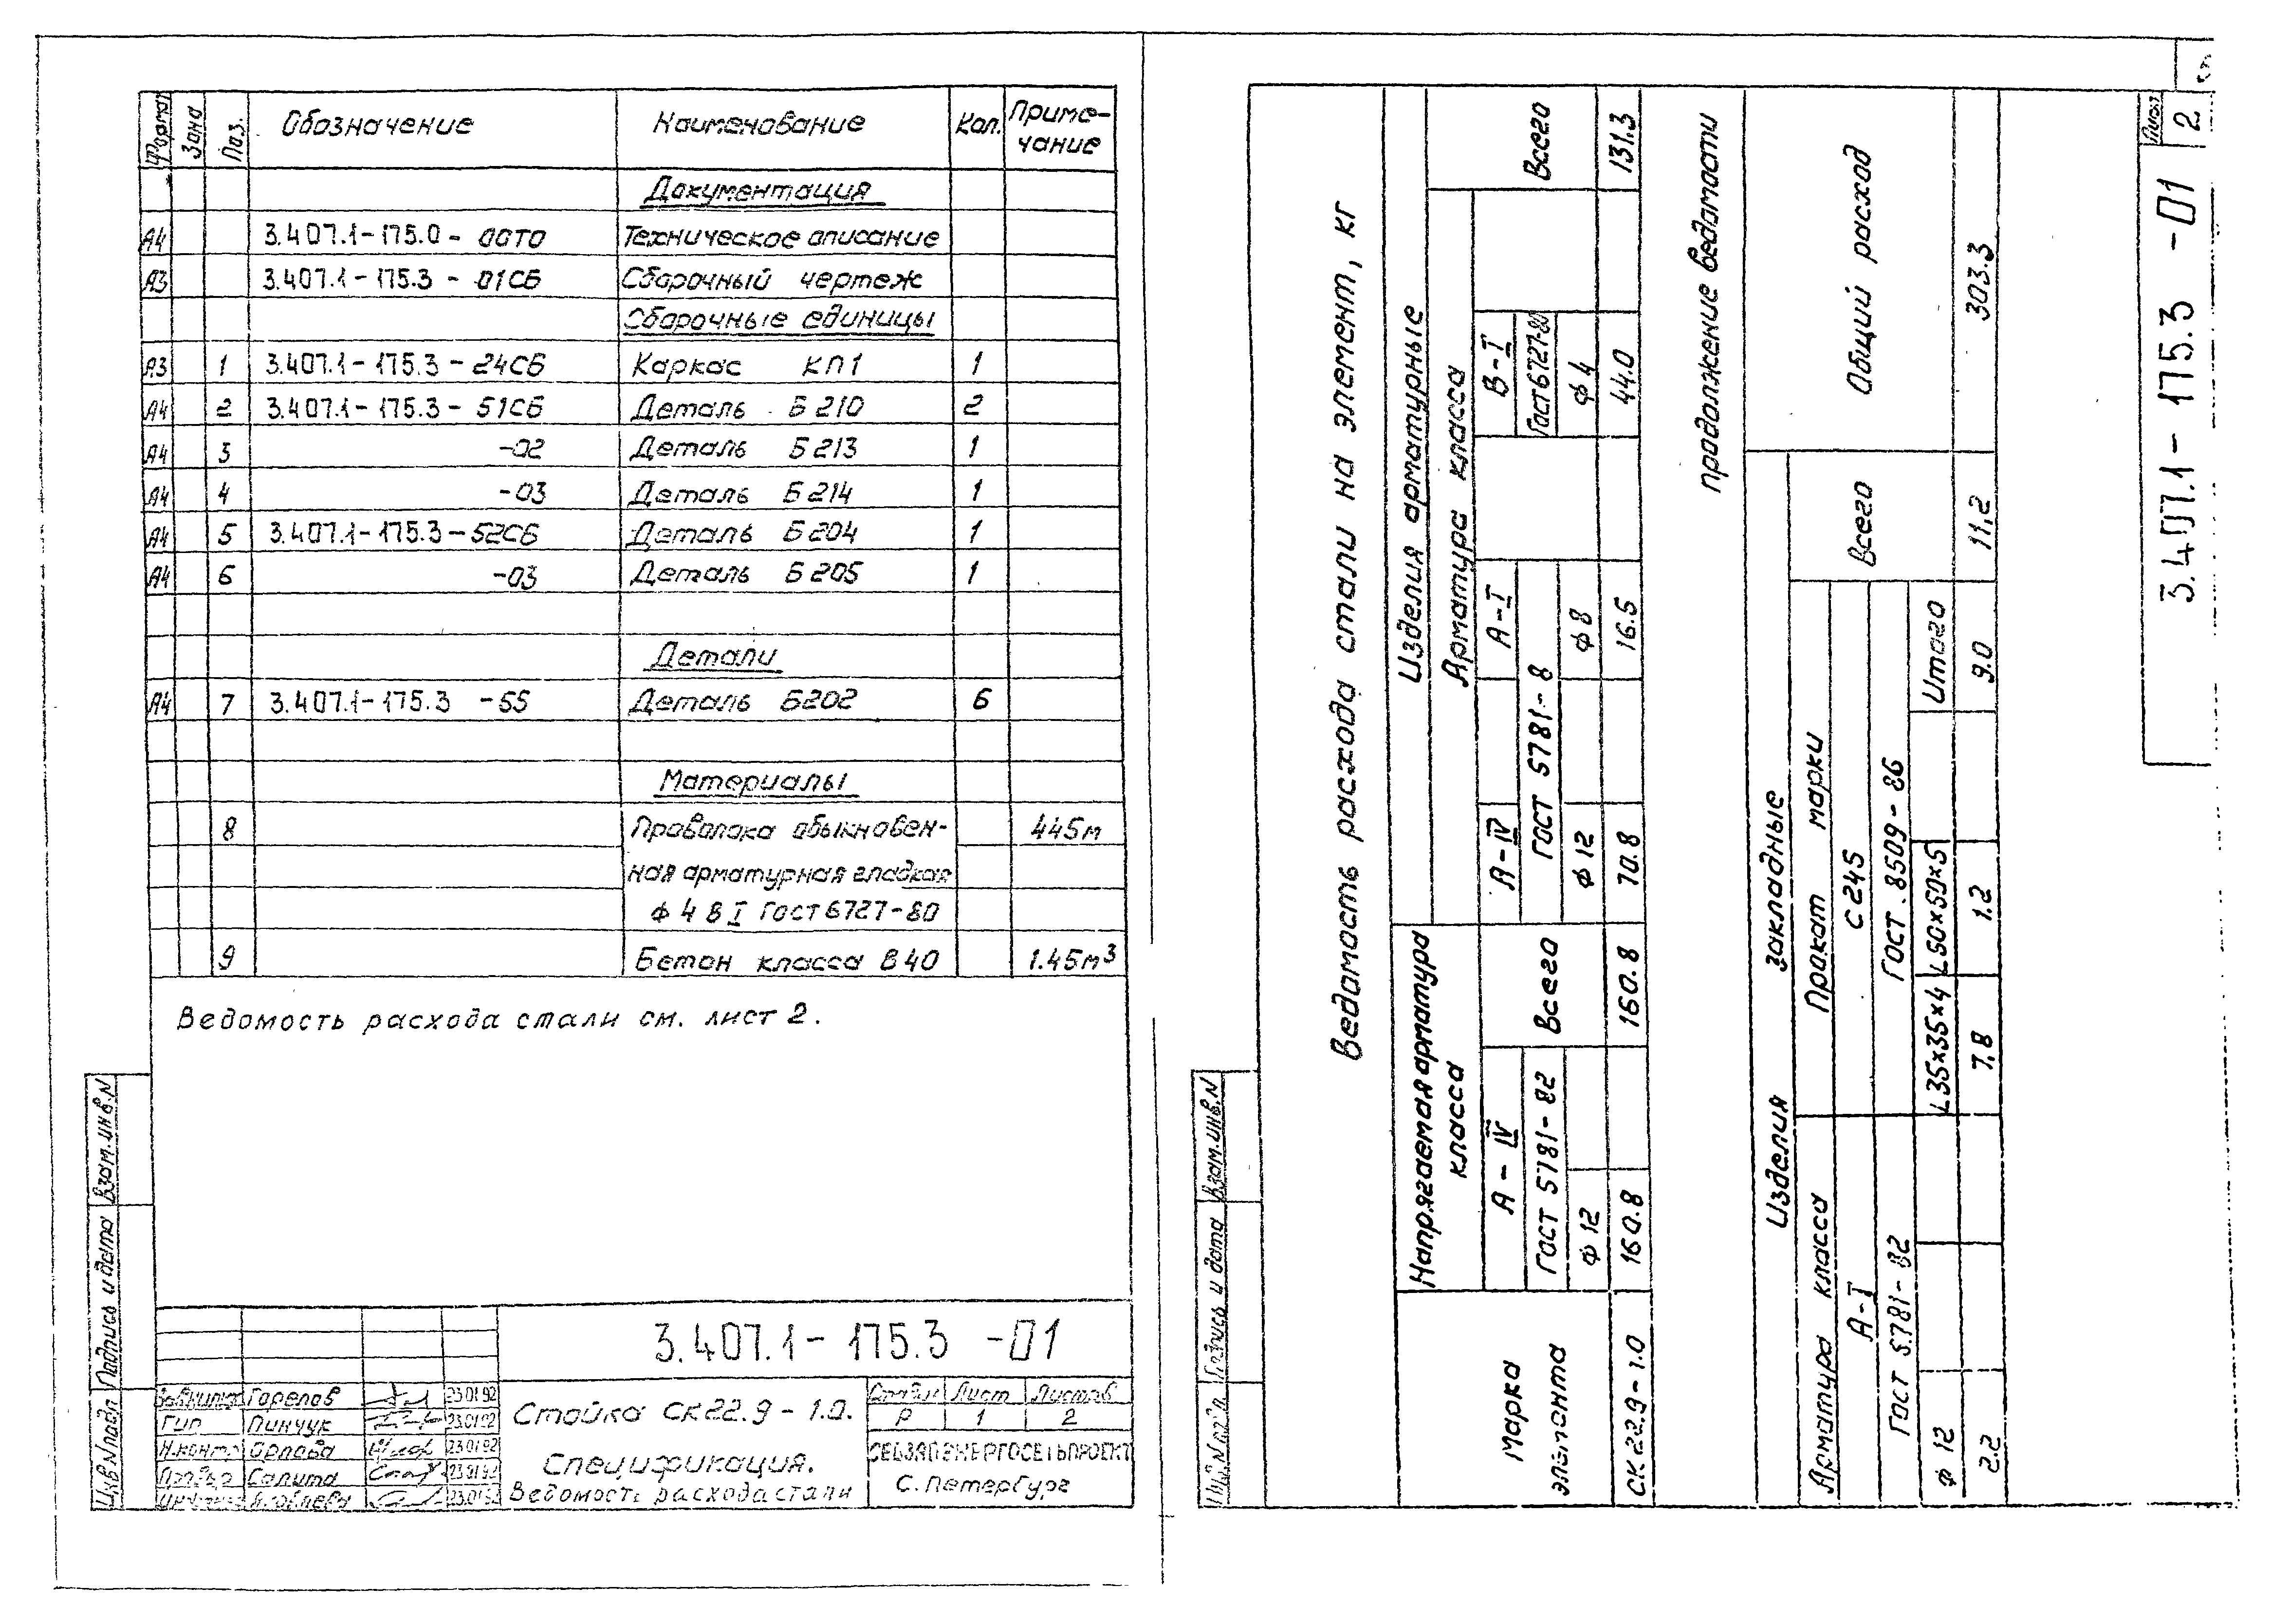 Формат Зона Поз. Обозначение Наименование Кол. Приме-
чание
Документация
А4 3.407.1-175.0-00ТО Техническое описание
А3 3.407.1-175.3-01СБ Сборочный чертеж
Сборочные единицы
А3 1 3.407.1-175.3-24СБ Каркас КП1 1
А4 2 3.407.1-175.3-51СБ Деталь Б210 2
А4 3 -02 Деталь Б213 1
А4 4 -03 Деталь Б214 1
А4 5 3.407.1-175.3-52СБ Деталь Б204 1
А4 6 -03 Деталь Б205 1
Детали
А4 7 3.407.1-175.3 -55 Деталь Б202 6
Материалы
8 Проволока обыкновен- 445м
ная арматурная гладкая
ф 4 В I Гост 6727-80
9 Бетон класса В40 1.45м³
Ведомость расхода стали см. лист 2.
Взам.инв.N
Подпись и дата
Инв.N подл
3.407.1-175.3 -01
Горелов 23.01.92
ГИП Пинчук 23.01.92
Н.контр Орлова 23.01.92
Салита 23.01.92
Яковлева 23.01.92
Стойка СК22.9-1.0.
Спецификация.
Ведомость расхода стали
Стадия Лист Листов
Р 1 2
СЕВЗАПЭНЕРГОСЕТЬПРОЕКТ
С.Петербург
Ведомость расхода стали на элемент, кг
Марка
элемента
Напрягаемая арматура
класса
Изделия арматурные
Арматура класса
А-IV Всего А-IV А-I В-I Всего
Гост 5781-82 Гост 5781-8 Гост 6727-80
ф 12 ф 12 ф 8 ф 4
СК22.9-1.0 160.8 160.8 70.8 16.5 44.0 131.3
продолжение ведомости
Изделия закладные Общий расход
Арматура класса Прокат марки Всего
А-I С245
Гост 5781-82 Гост 8509-86
ф 12 L35×35×4 L50×50×5 Итого
2.2 7.8 1.2 9.0 11.2 303.3
Взам.инв.N
Подпись и дата
3.407.1-175.3 -01
Лист
2